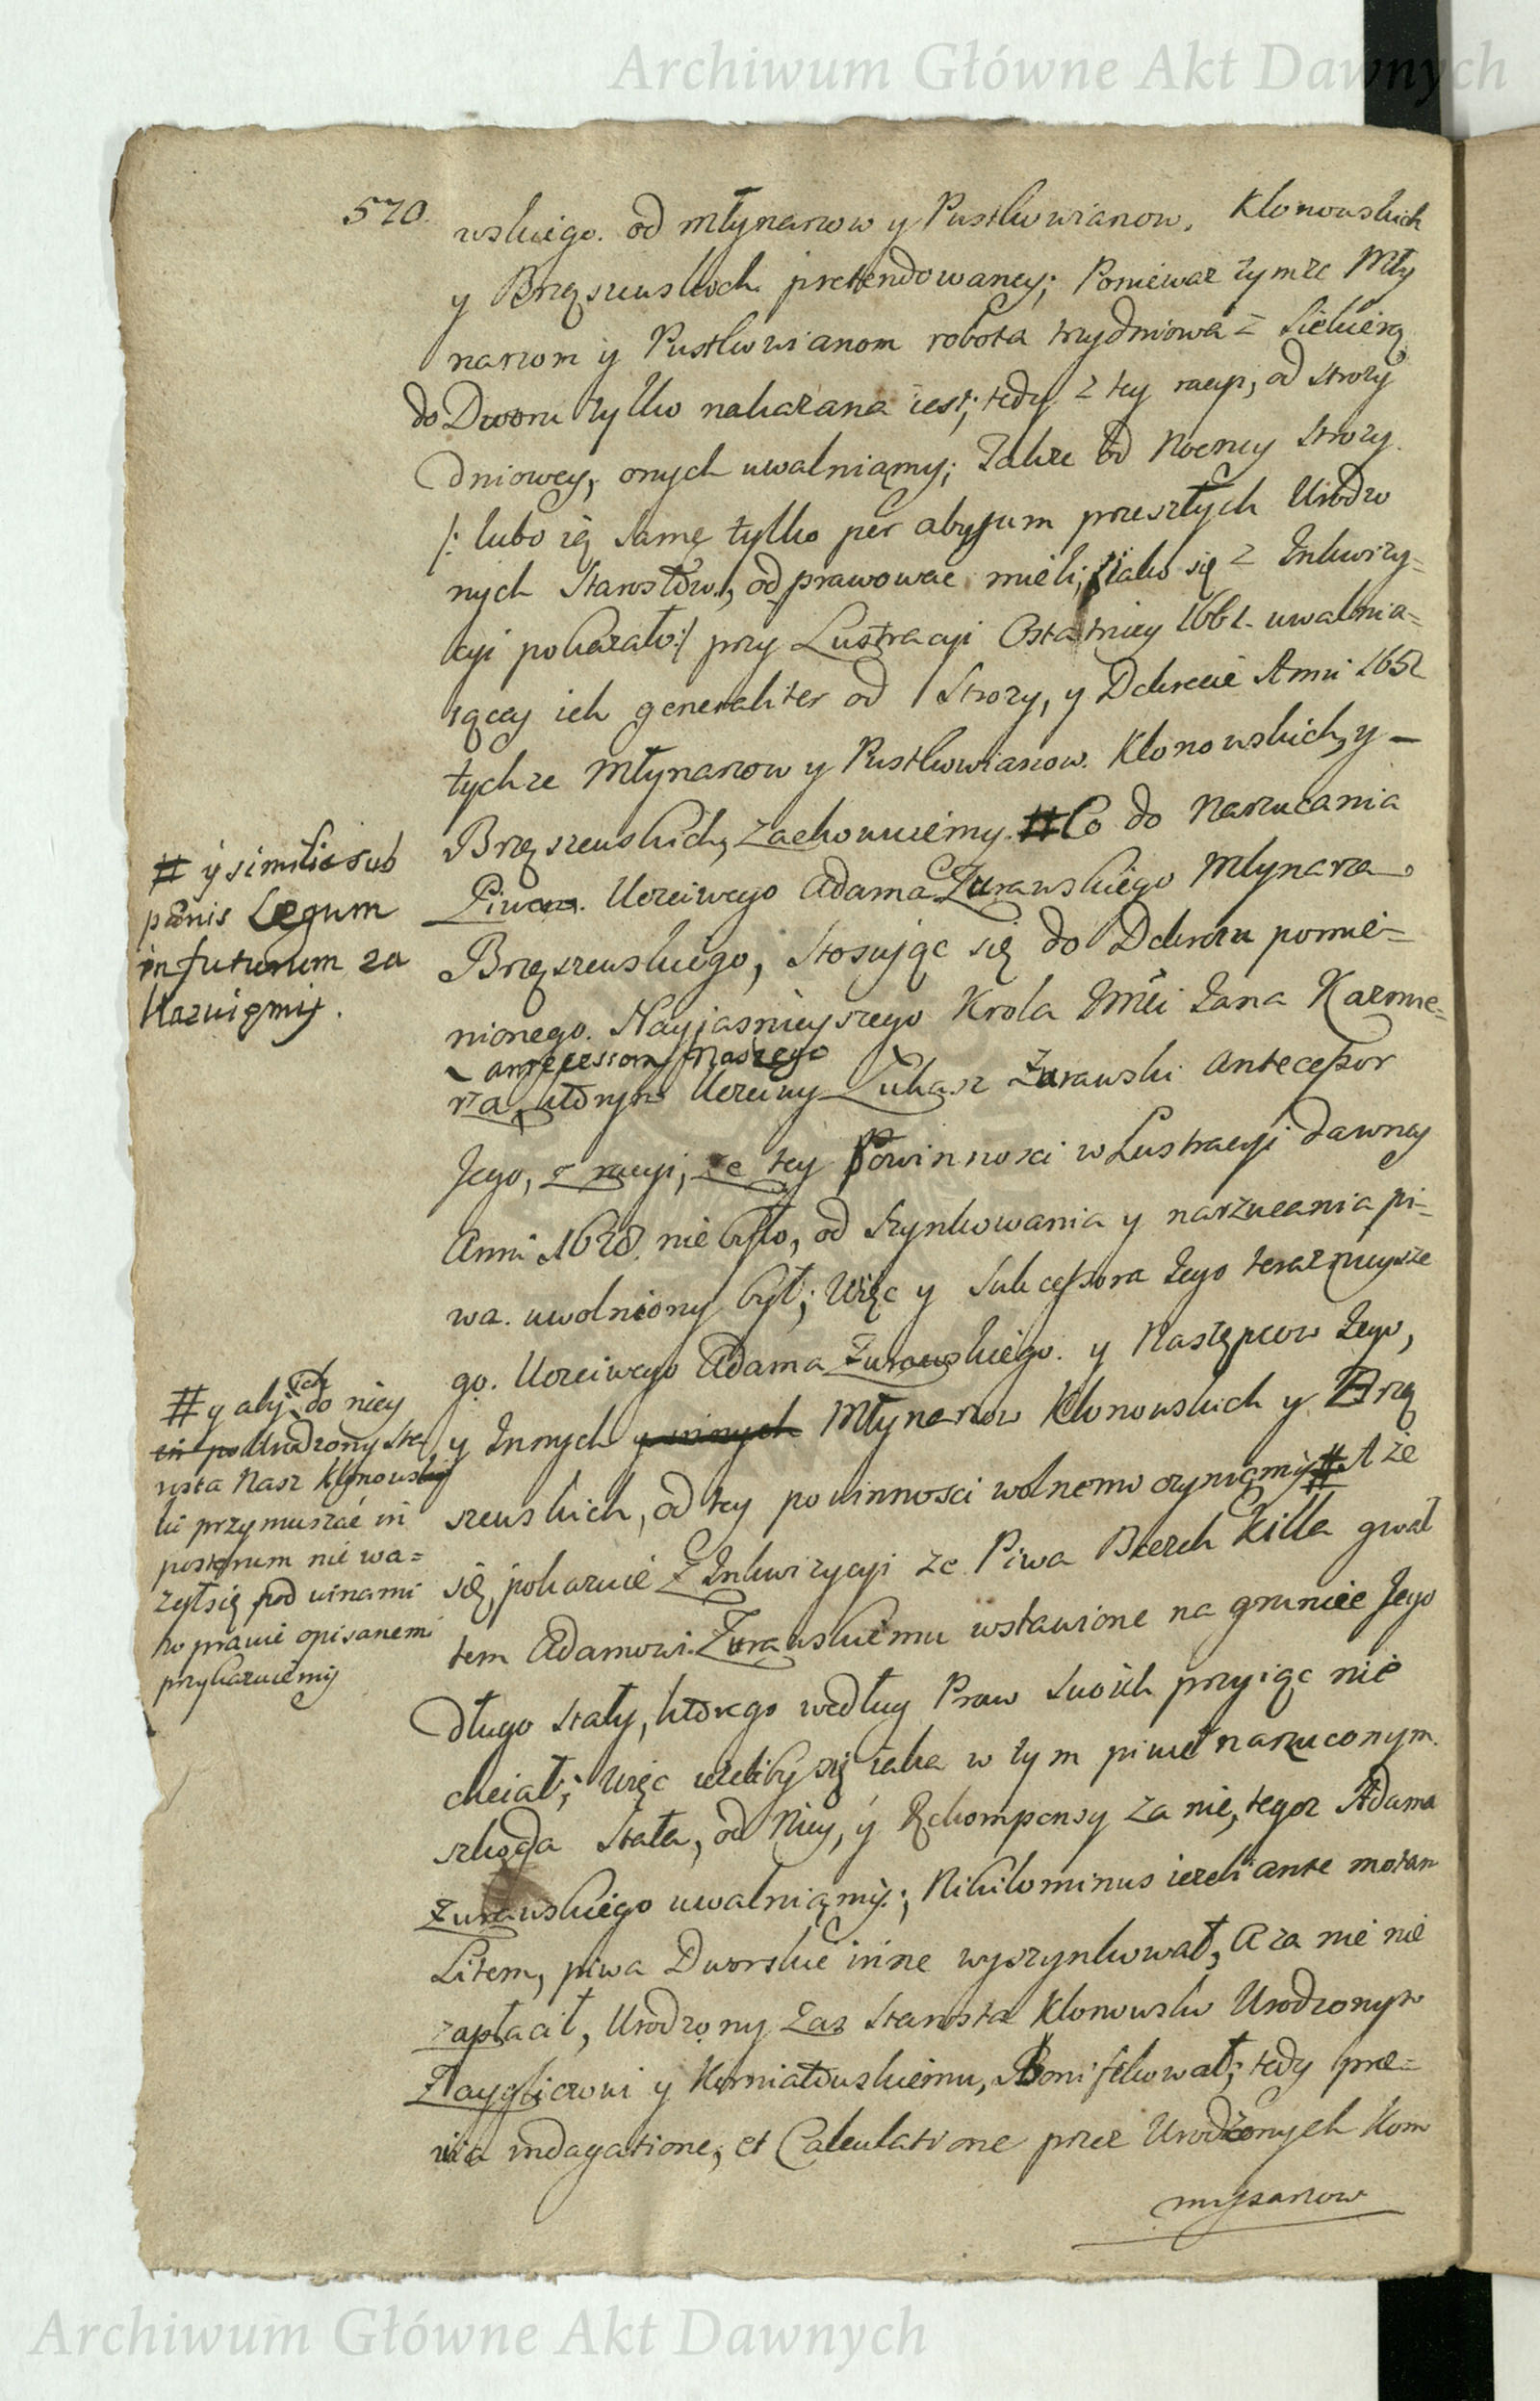 Archiwum Główne Akt Dawnych
570.
wskiego. od Młynarzow y Pustkowianow, Klonowskich
y Brząszewskich pretendowaney; Ponieważ tymże Mły
narzom y Pustkowianom robota trzydniowa z Siekierą
do Dworu tylko nakazana iest; tedy z tey racyi, od Stroży
dniowey, onych uwalniamy; Także od Nocney Stroży
/: lubo ią samę tylko per abusum przeszłych Urodzo
nych Starostow, odprawować mieli; iako się z Inkwizy=
cyi pokazało:/ przy Lustracyi Ostatniey 1661. uwalnia=
iącey ich generaliter od Stroży, y Dekrecie Anni 1652
tychże Młynarzow y Pustkowianow. Klonowskich, y –
Brząszewskich, zachowuiemy. # Co do Narzucania
Piwa. Uczciwego Adama Żurawskiego Młynarza
Brząszewskiego, stosując się do Dekretu pomie=
nionego. Nayjaśnieyszego Krola Jmći Jana Kazmie=
antecessora Naszego
rza, ktorym Uczciwy Łukasz Żurawski Antecessor
Jego, z racyi, że tey Powinnosci w Lustracyi dawney
Anni 1628. nie było, od Szynkowania y narzucania pi=
wa. uwolniony był; Więc y Sukcessora Jego teraznieysze
go. Uczciwego Adama Żurawskiego. y Następcow Jego,
y Innych y innych Młynarzow Klonowskich y Brzą
szewskich, od tey powinnosci wolnemi czyniemy # A że
się pokazuie z Inkwizycyi że Piwa Beczek Kilka gwał
tem Adamowi Żurawskiemu wstawione na gruncie Jego
długo stały, ktorego według Praw Swoich przyiąć nie
chciał; Więc ieżeliby się iaka w tym piwie narzuconym
szkoda stała, od Niey, y Rekompensy za nie, tegoż Adama
Żurawskiego uwalniamy; Nihilominus ieżeli ante motam
Litem, piwa Dworskie inne wyszynkował, A za nie nie
zapłacił, Urodzony zas Starosta Klonowski Urodzonym
y Korniatowskiemu, Bonifikował; tedy prae=
via indagatione, et Calculatione przez Urodzonych Kom
missarzow
# y similiesub
paenis Legum
in futurum za
kazuięmy.
# y aby ich do niey
Urodzony Sta
rosta Nasz Klonowski
przymuszać in
posterum nie wa=
żył się pod winami
w prawie opisanemi
przykazuiemy
Archiwum Główne Akt Dawnych